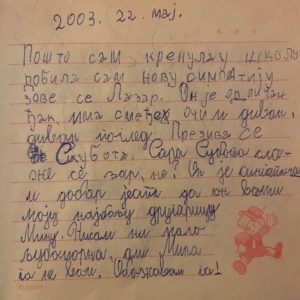 2003. 22. мај.
Пошто сам кренула у школу
добила сам нову симпатију
зове се Лазар. Он је одличан
ђак, има смеђе очи и диван,
диван поглед. Презива се
Субота. Сара Субота сла-
же се зар не? Он је симпатичан
и добар јесте да он воли
моју најбољу другарицу
Мину. Нисам ни мало
љубоморна, али Мина
га не воли. Обожавам га!